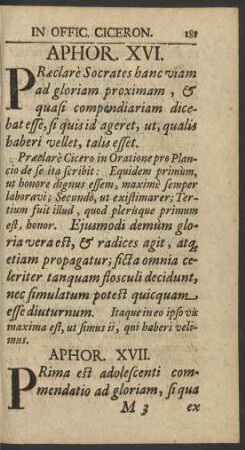 IN OFFIC. CICERON. 181
APHOR. XVI.
PRæclarè Socrates hanc viam
ad gloriam proximam, &
quasi compendiariam dice-
bat esse, si quis id ageret, ut, qualis
haberi vellet, talis esset.
Præclarè Cicero in Oratione pro Plan-
cio de se ita scribit: Equidem primùm,
ut honore dignus essem, maximè semper
laboravi; Secundò, ut existimarer; Ter-
tium fuit illud, quod plerisque primum
est, honor. Ejusmodi demùm glo-
ria vera est, & radices agit, atq́
etiam propagatur; ficta omnia ce-
leriter tanquam flosculi decidunt,
nec simulatum potest quicquam
esse diuturnum. Itaque in eo ipso vis
maxima est, ut simus ii, qui haberi veli-
mus.
APHOR. XVII.
PRima est adolescenti com-
mendatio ad gloriam, si qua
M 3 ex